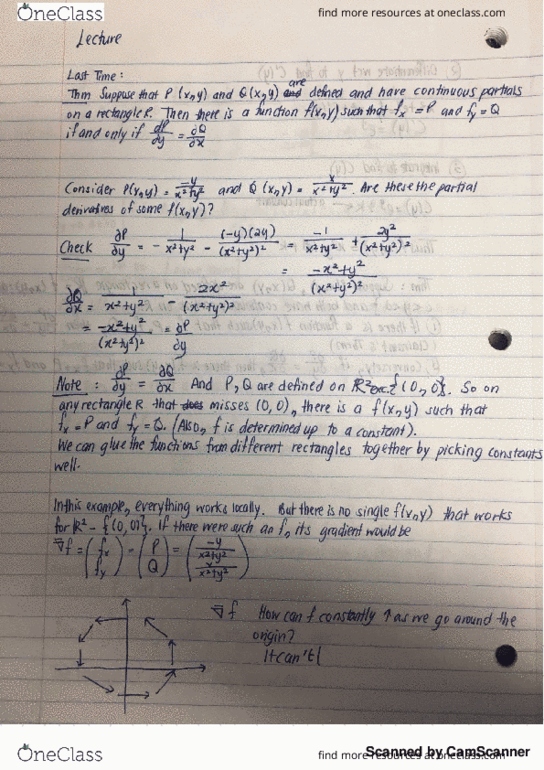 OneClass
find more resources at oneclass.com
Lecture
Last Time:
are
Thm Suppose that P(x,y) and Q(x,y) and defined and have continuous partials
on a rectangle R. Then there is a function f(x,y) such that fx = P and fy = Q
if and only if ∂P/∂y = ∂Q/∂x
Consider P(x,y) = -y/(x²+y²) and Q(x,y) = x/(x²+y²). Are these the partial
derivatives of some f(x,y)?
Check ∂P/∂y = - 1/(x²+y²) - (-y)(2y)/(x²+y²)² = -1/(x²+y²) + 2y²/(x²+y²)²
= (-x²+y²)/(x²+y²)²
∂Q/∂x = 1/(x²+y²) - 2x²/(x²+y²)²
= (-x²+y²)/(x²+y²)² = ∂P/∂y
Note: ∂P/∂y = ∂Q/∂x And P, Q are defined on ℝ² exc. {0, 0}. So on
any rectangle R that does misses (0,0), there is a f(x,y) such that
fx = P and fy = Q. (Also, f is determined up to a constant).
We can glue the functions from different rectangles together by picking constants
well.
In this example, everything works locally. But there is no single f(x,y) that works
for ℝ² - {(0,0)}. If there were such an f, its gradient would be
∇f = (fx fy) = (P Q) = (-y/(x²+y²) x/(x²+y²))
∇f How can f constantly ↑ as we go around the
origin?
It can't!
OneClass
find more resources at oneclass.com
Scanned by CamScanner